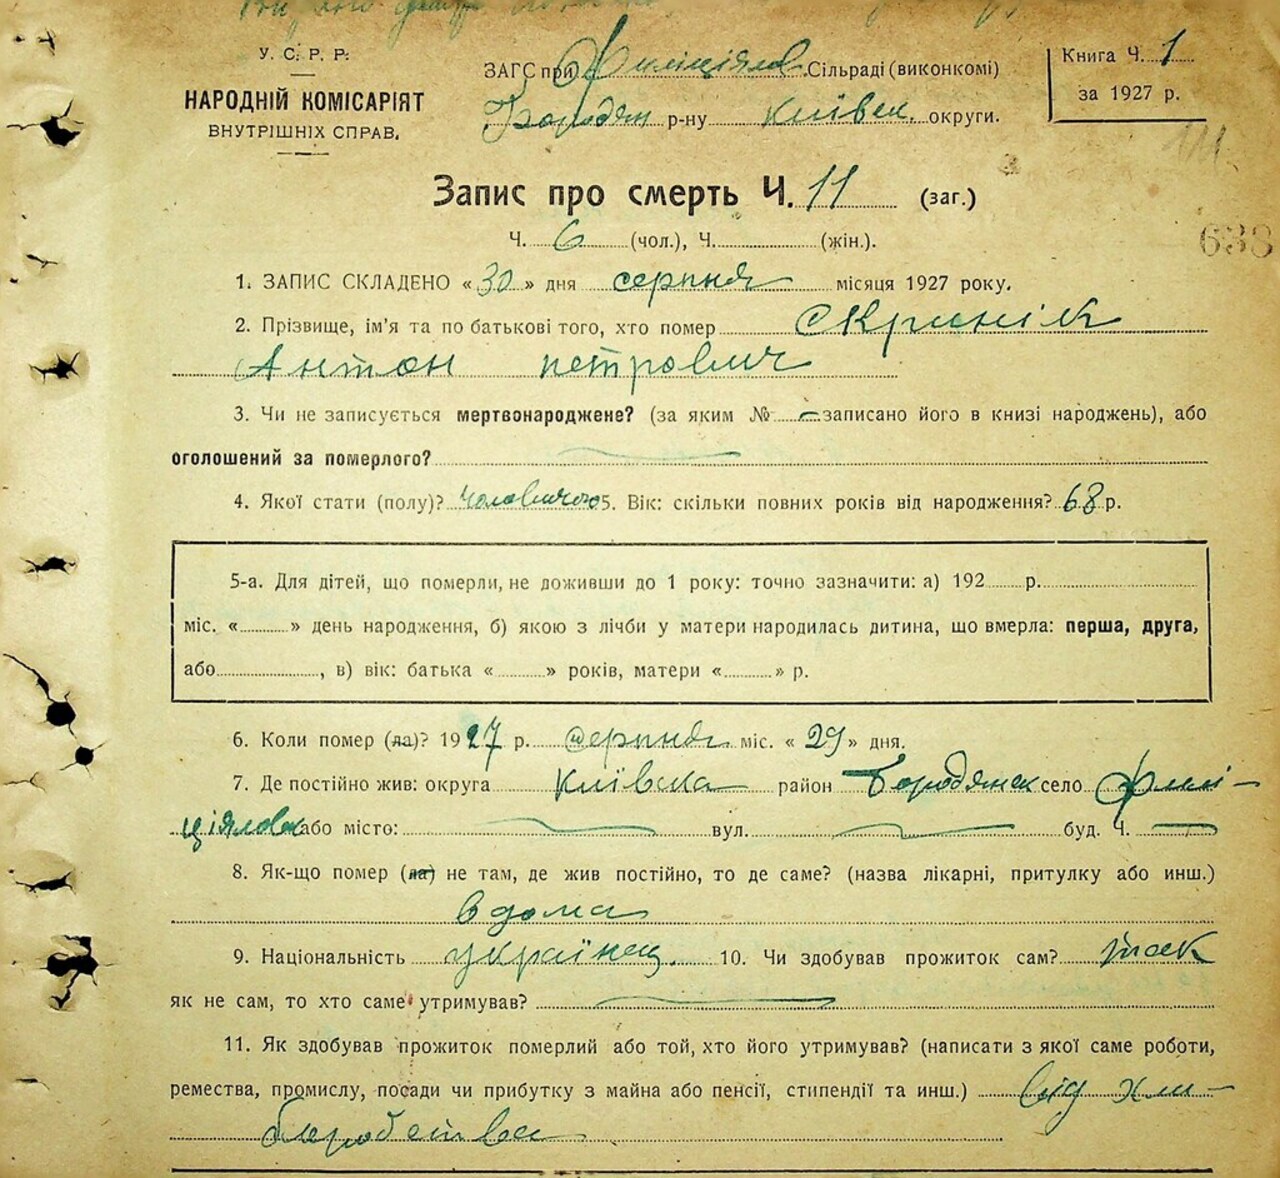 У. С. Р. Р.
НАРОДНІЙ КОМІСАРІЯТ
ВНУТРІШНІХ СПРАВ.
ЗАГС при Филиціялів. Сільраді (виконкомі)
Бородян р-ну київск. округи.
Книга Ч. 1
за 1927 р.
638
Запис про смерть Ч. 11 (заг.)
Ч. 6 (чол.), Ч. (жін.).
1. ЗАПИС СКЛАДЕНО « 30 » дня серпня місяця 1927 року.
2. Прізвище, ім'я та по батькові того, хто помер Скрипік
Антон петрович
3. Чи не записується мертвонароджене? (за яким № — записано його в книзі народжень), або
оголошений за померлого?
4. Якої стати (полу)? чоловичого 5. Вік: скільки повних років від народження? 68 р.
5-а. Для дітей, що померли, не доживши до 1 року: точно зазначити: а) 192 р.
міс. « » день народження, б) якою з лічби у матери народилась дитина, що вмерла: перша, друга,
або , в) вік: батька « » років, матери « » р.
6. Коли помер (ла)? 1927 р. серпня міс. « 29 » дня.
7. Де постійно жив: округа Київска район Бородянск село Фили-
ціяловк або місто: вул. буд. Ч. —
8. Як-що помер (ла) не там, де жив постійно, то де саме? (назва лікарні, притулку або инш.)
вдома
9. Національність українец. 10. Чи здобував прожиток сам? так
як не сам, то хто саме утримував?
11. Як здобував прожиток померлий або той, хто його утримував? (написати з якої саме роботи,
ремества, промислу, посади чи прибутку з майна або пенсії, стипендії та инш.) від хли-
боробства